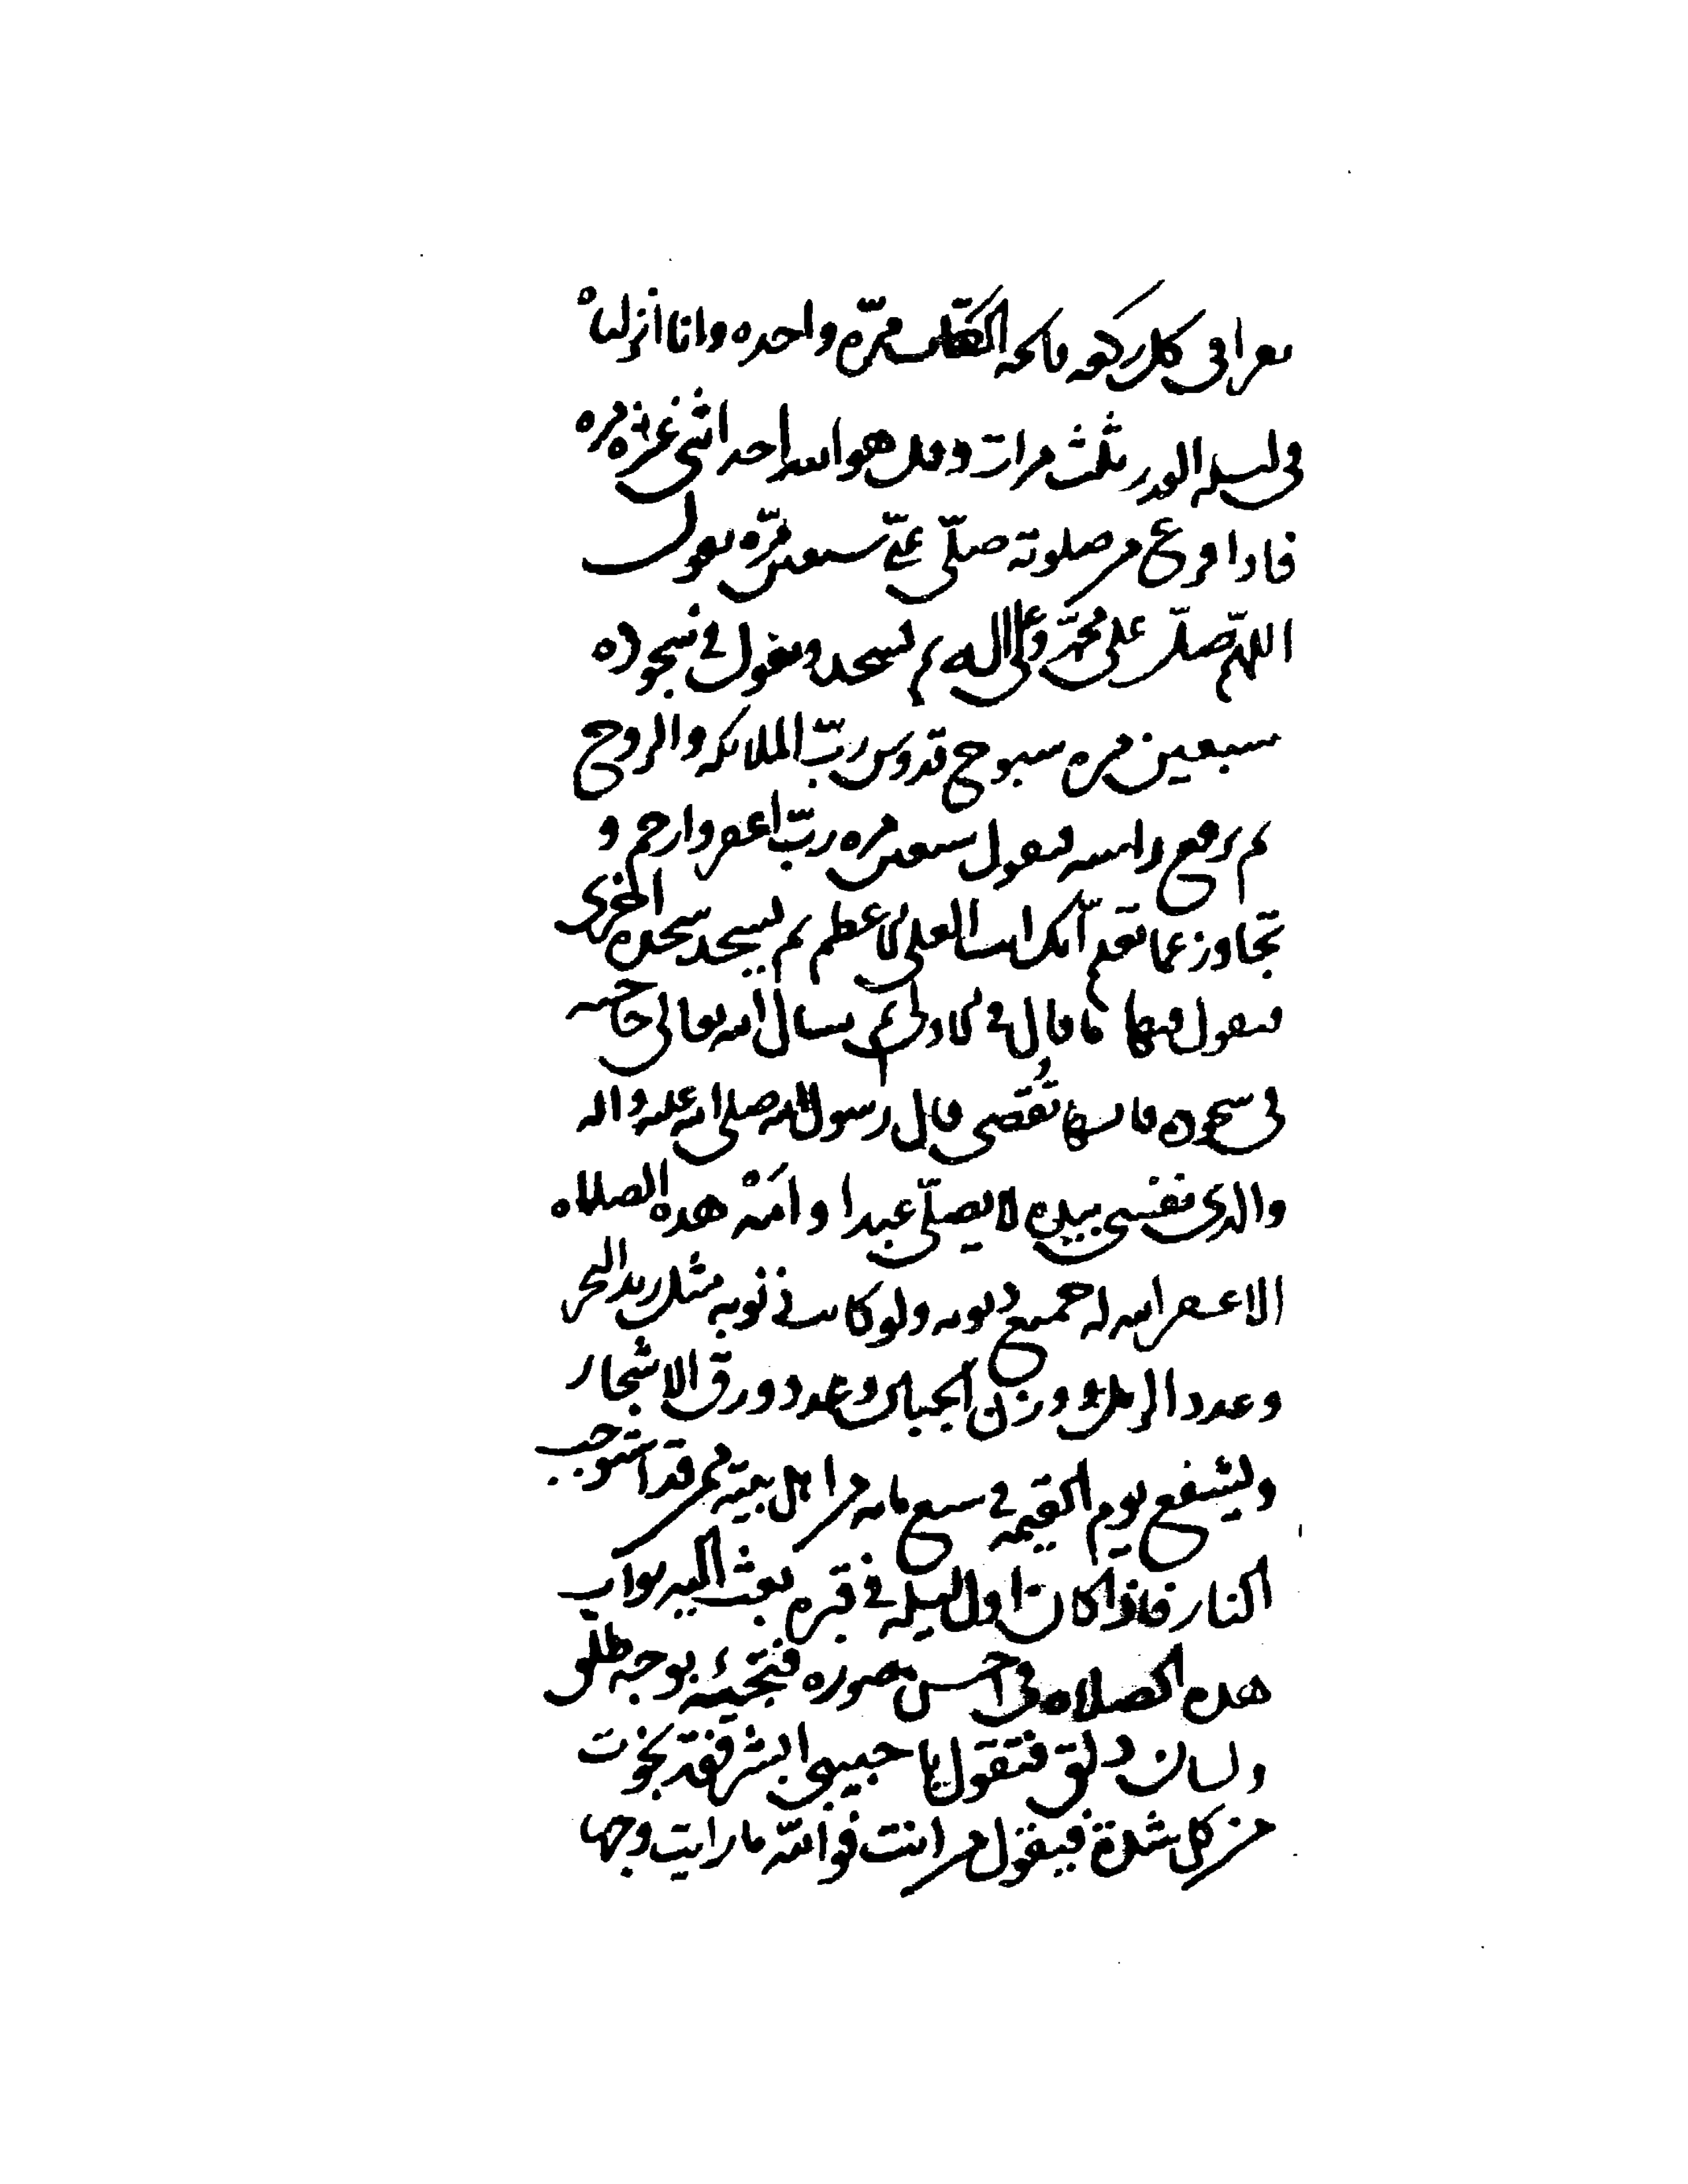 يقرا في كل ركعه فاتحه الكتاب مرّه واحده وانا انزلناه
في ليله القدر ثلث مرات وقل هو الله احد اثنى عشره مره
فاذا فرغ من صلوته صلّى علىّ سبعين مرّه يقول
اللهمّ صلّ على محمّد وعلى اله ثم يسجد ويقول في سجوده
سبعين مره سبوح قدوس ربّ الملائكه والروح
ثم يرفع راسه فيقول سبعين مره ربّ اغفر وارحم و
تجاوز عما تعلم انّك انت العلي الاعظم ثم يسجد سجده اخرى
فيقول فيها ما قال في الاولى ثم يسال الله تعالى حاجته
في سجوده فانها تُقضى قال رسول الله صلى الله عليه واله
والذي نفسي بيده لا يصلّي عبدا وامَةْ هذه الصلاه
الا غفر الله له جميع ذنوبه ولو كانت ذنوبه مثل زبد البحر
وعدد الرمل ووزن الجبال وعدد ورق الاشجار
ويشفع يوم القيمه في سبع مايه من اهل بيته ممن قد استوجب
النار فاذا كان اول ليله في قبره بعث اليه ثواب
هذه الصلاه في احسن صوره فتجيئه بوجه طلق
ولسان دلق فتقول يا حبيبي ابشر فقد نجوت
من كل شدة فيقول من انت فوالله ما رايت وجها